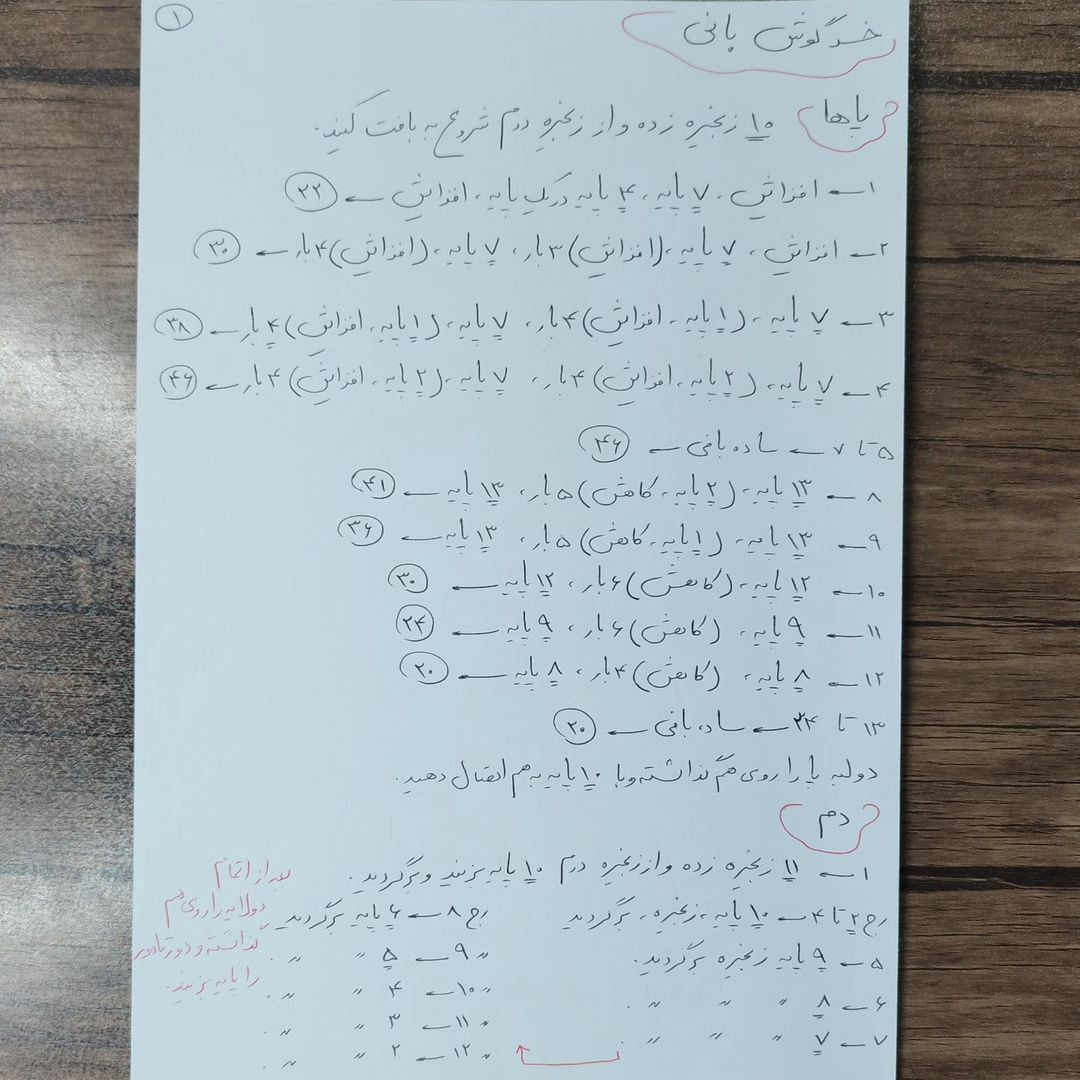 ۱
خرگوش بانی
پاها
۱۰ زنجیره زده و از زنجیره دوم شروع به بافت کنید.
۱← افزایش، ۷ پایه، ۴ پایه در یک پایه، افزایش ← ۲۲
۲← افزایش، ۷ پایه، (افزایش) ۳ بار، ۷ پایه، (افزایش) ۴ بار ← ۳۰
۳← ۷ پایه، (۱ پایه، افزایش) ۴ بار، ۷ پایه، (۱ پایه، افزایش) ۴ بار ← ۳۸
۴← ۷ پایه، (۲ پایه، افزایش) ۴ بار، ۷ پایه، (۲ پایه، افزایش) ۴ بار ← ۴۶
۵ تا ۷ ← ساده بافی ← ۴۶
۸ ← ۱۳ پایه، (۲ پایه، کاهش) ۵ بار، ۱۳ پایه ← ۴۱
۹ ← ۱۳ پایه، (۱ پایه، کاهش) ۵ بار، ۱۳ پایه ← ۳۶
۱۰ ← ۱۲ پایه، (کاهش) ۶ بار، ۱۲ پایه ← ۳۰
۱۱ ← ۹ پایه، (کاهش) ۶ بار، ۹ پایه ← ۲۴
۱۲ ← ۸ پایه، (کاهش) ۴ بار، ۸ پایه ← ۲۰
۱۳ تا ۲۴ ← ساده بافی ← ۲۰
دو لبه پا را روی هم گذاشته و با ۱۰ پایه به هم اتصال دهید.
دم
۱← ۱۱ زنجیره زده و از زنجیره دوم ۱۰ پایه بزنید و برگردید.
رج ۲ تا ۴ ← ۱۰ پایه، زنجیره، برگردید
۵ ← ۹ پایه زنجیره برگردید.
۶ ← ۸ 〃 〃 〃 .
۷ ← ۷ 〃 〃 〃 .
رج ۸ ← ۶ پایه برگردید
〃 ۹ ← ۵ 〃 〃 .
〃 ۱۰ ← ۴ 〃 〃 .
〃 ۱۱ ← ۳ 〃 〃 .
〃 ۱۲ ← ۲ 〃 〃 .
بعد از اتمام
دو لایه را روی هم
گذاشته و دور تا دور
را پایه بزنید.